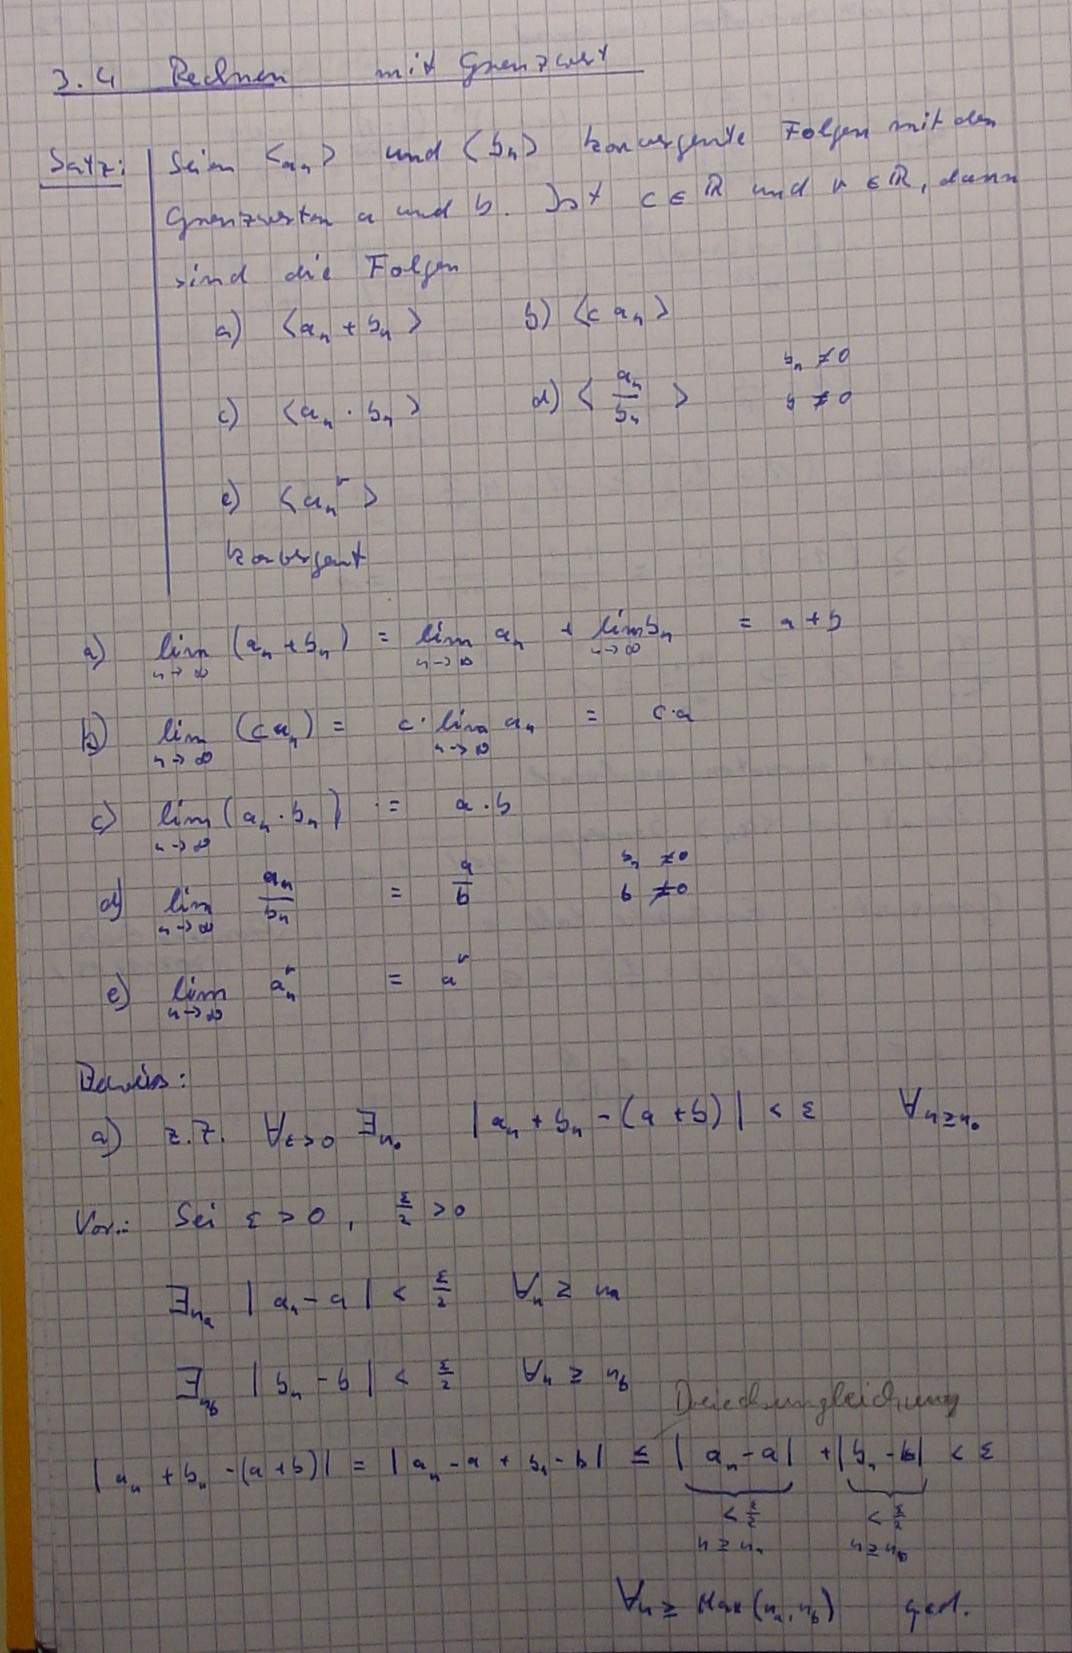 3.4 Rechnen mit Grenzwert
Satz: Seien <aₙ> und <bₙ> konvergente Folgen mit den
Grenzwerten a und b. Ist c ∈ ℝ und r ∈ ℝ, dann
sind die Folgen
a) <aₙ + bₙ> b) <c aₙ>
c) <aₙ · bₙ> d) <aₙ/bₙ> bₙ ≠ 0 b ≠ 0
e) <aₙʳ>
konvergent
a) lim n→∞ (aₙ + bₙ) = lim n→∞ aₙ + lim n→∞ bₙ = a + b
b) lim n→∞ (c aₙ) = c · lim n→∞ aₙ = c·a
c) lim n→∞ (aₙ · bₙ) = a · b
d) lim n→∞ aₙ/bₙ = a/b bₙ ≠ 0 b ≠ 0
e) lim n→∞ aₙʳ = aʳ
Beweis:
a) z.z. ∀ε>0 ∃n₀ |aₙ + bₙ - (a + b)| < ε ∀n≥n₀
Vor.: Sei ε > 0, ε/2 > 0
∃nₐ |aₙ - a| < ε/2 ∀n ≥ nₐ
∃n_b |bₙ - b| < ε/2 ∀n ≥ n_b
Dreiecksungleichung
|aₙ + bₙ - (a + b)| = |aₙ - a + bₙ - b| ≤ |aₙ - a| + |bₙ - b| < ε
< ε/2 < ε/2
n ≥ nₐ n ≥ n_b
∀n ≥ Max(nₐ, n_b) qed.